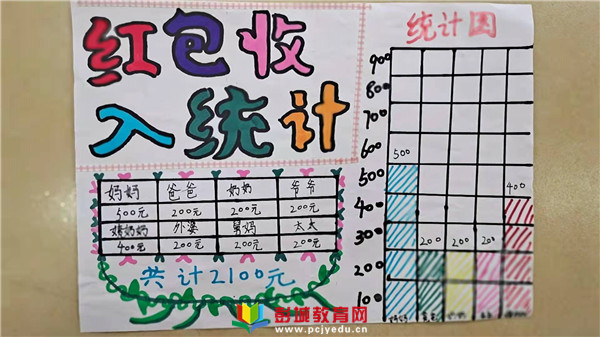 红包收
入统计
妈妈 爸爸 奶奶 爷爷
500元 200元 200元 200元
奶奶 外婆 舅妈 太太
400元 200元 200元 200元
共计2100元
统计图
900
800
700
600
500
500
400
400
300
200 200 200
200
100
彭城教育网
www.pcjyedu.cn